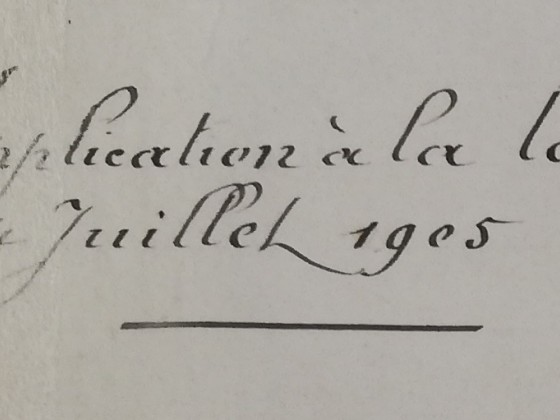 plication à la lo
Juillet 1905